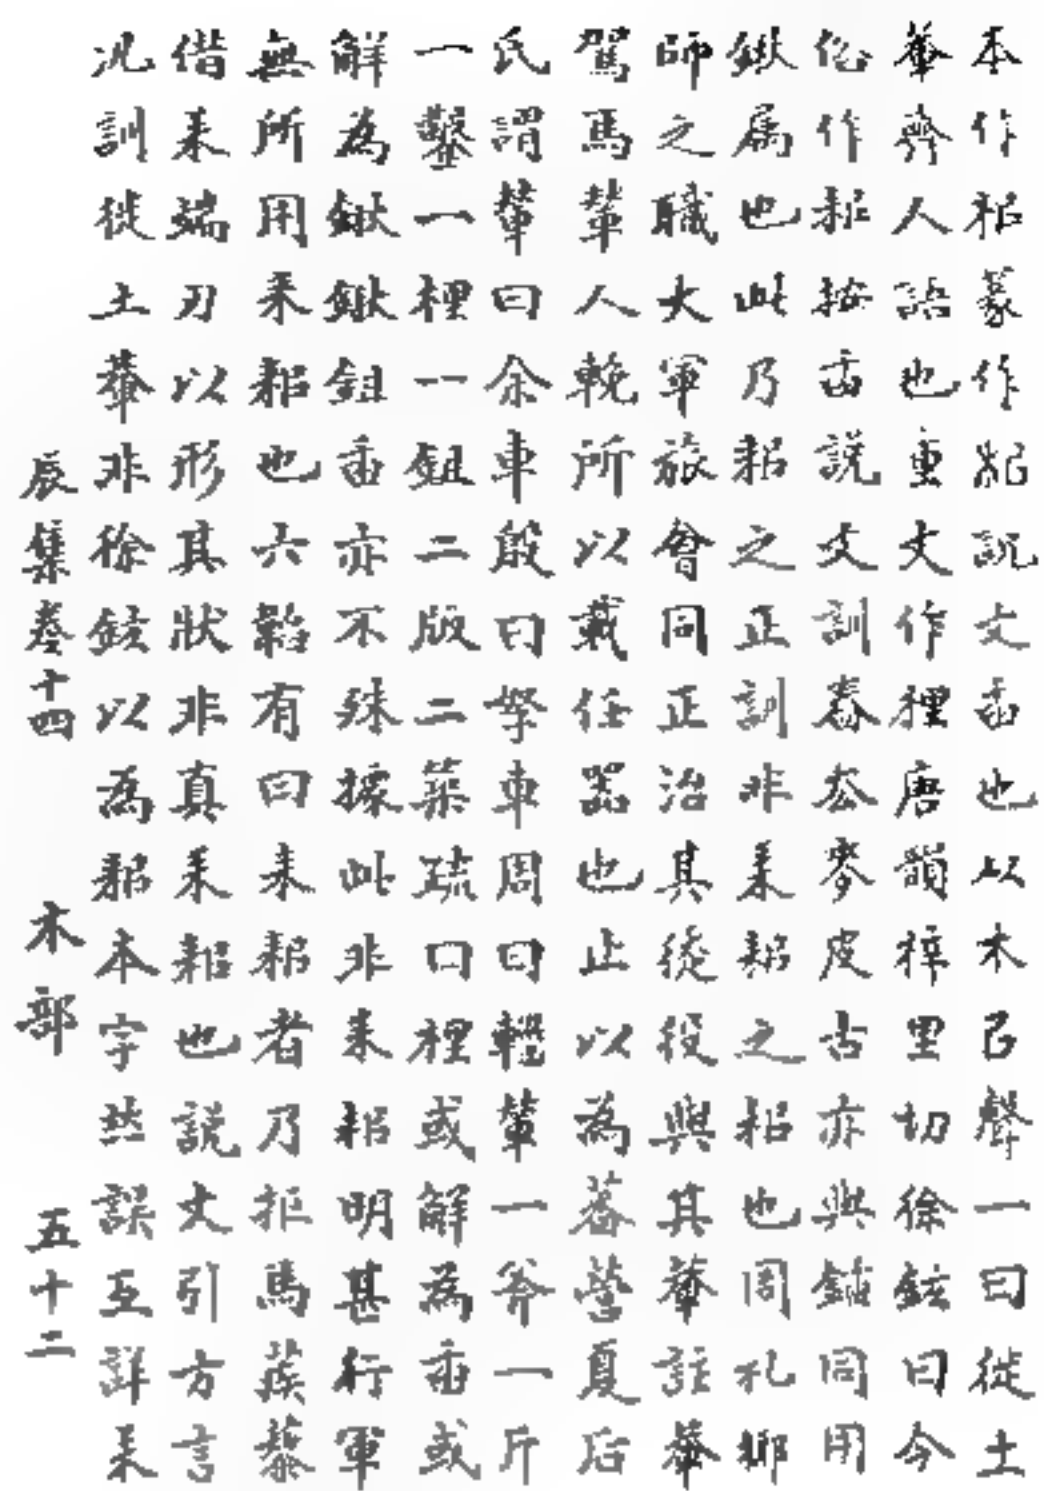 本作耜篆作𣏌說文臿也以木㠯聲一曰徙土
輂齊人語也重文作梩唐韻梓里切徐鉉曰今
俗作耜按臿說文訓舂去麥皮古亦與鍤同用
鍬属也此乃耜之正訓非耒耜之耜也周礼鄉
師之職大軍旅會同正治其徒役與其輂註輂
駕馬輦人輓所以載任器也止以為蕃營夏后
氏謂輦曰余車殷曰挐車周曰輜輦一斧一斤
一鑿一梩一鉏二版二築疏曰梩或解為臿或
解為鍬鍬鉏臿亦不殊據此非耒耜明甚行軍
無所用耒耜也六韜有曰耒耜者乃拒馬蒺藜
借耒端刃以形其狀非真耒耜也說文引方言
况訓徙土輂非徐鉉以為耜本字然誤互詳耒
辰集卷十四 木部 五十二